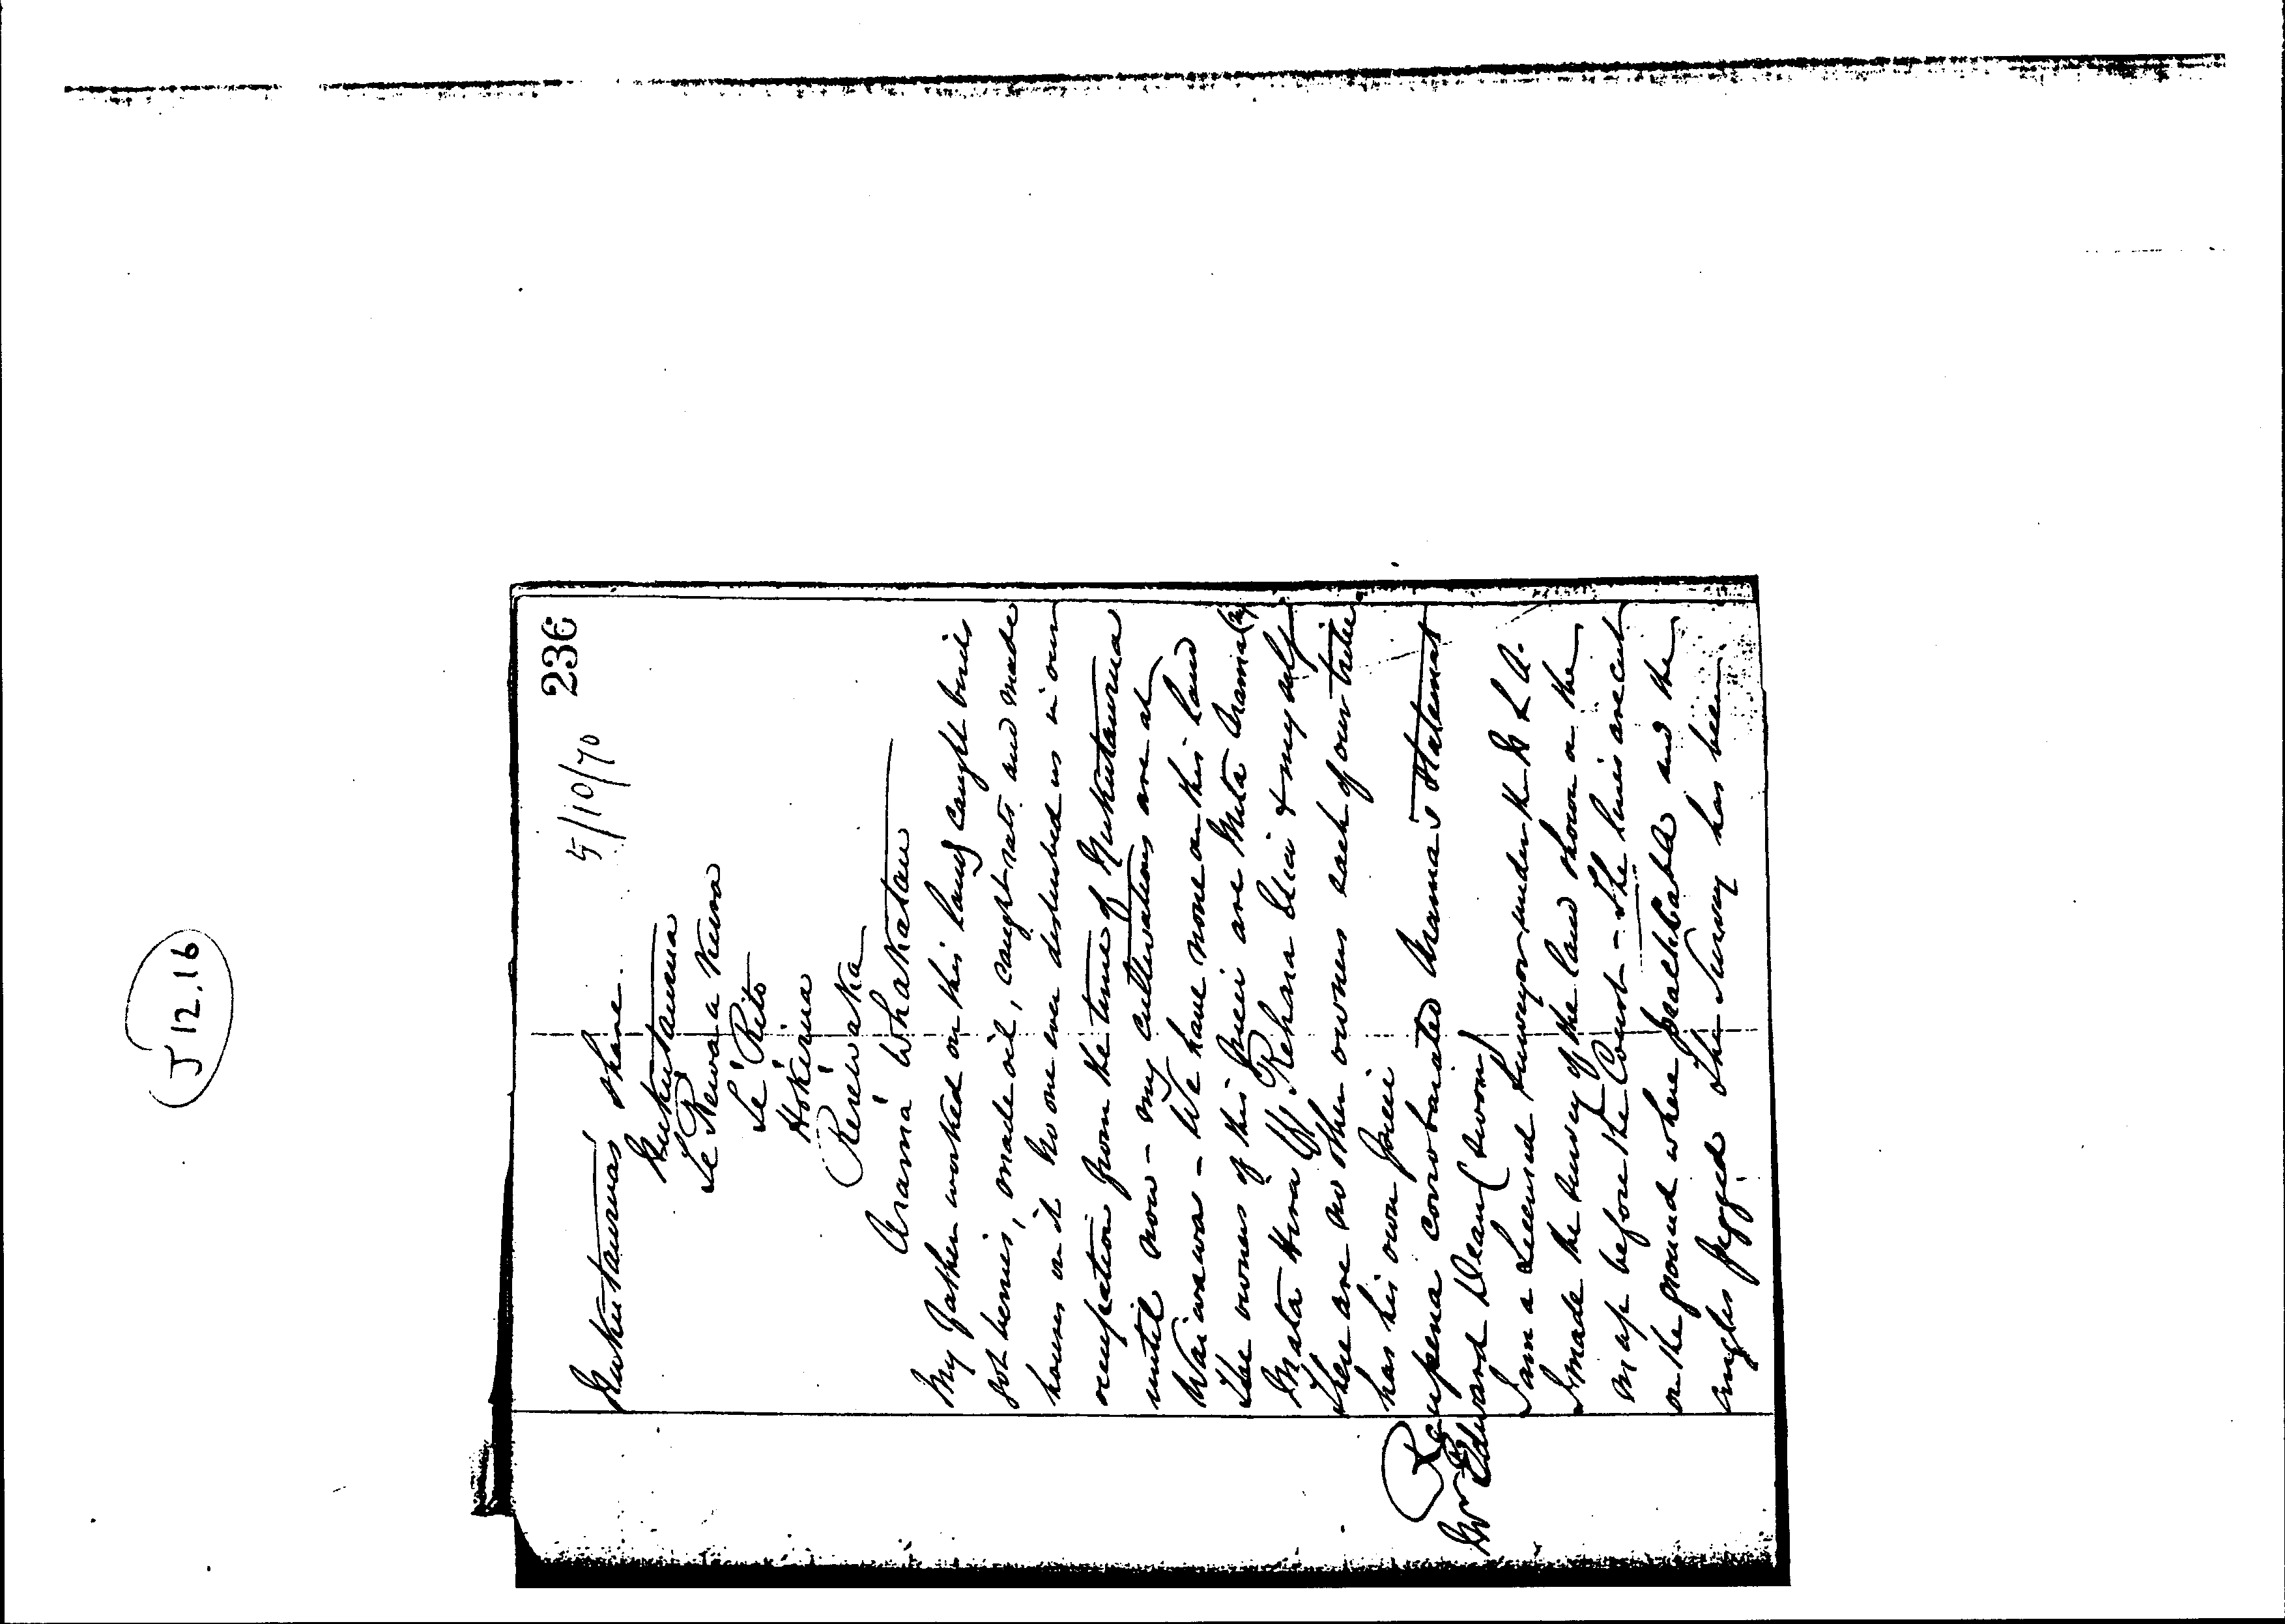 J 12.16
236
5/10/70
share
Te Rewa a
Te Rito
Hokirua
Rerewaka
Arama Whakatau
My father worked on this land caught birds
got berries, made oil, caught rats and made
houses on it No one ever disturbed us in our
occupation from the time of
until now - my cultivations are at
Waiwawa - We have none on this land
The owners of this piece are Mita
Mata Hura Rehara & myself
There are no other owners each of our tribe
has his own piece
Reupena corroborated Arama's statement
Mr Edward Dean (sworn)
I am a Licensed Surveyor under the N L A.
I made the survey of the land shown on the
map before the Court - The lines are cut
on the ground where practicable and the
angles pegged The Survey has been